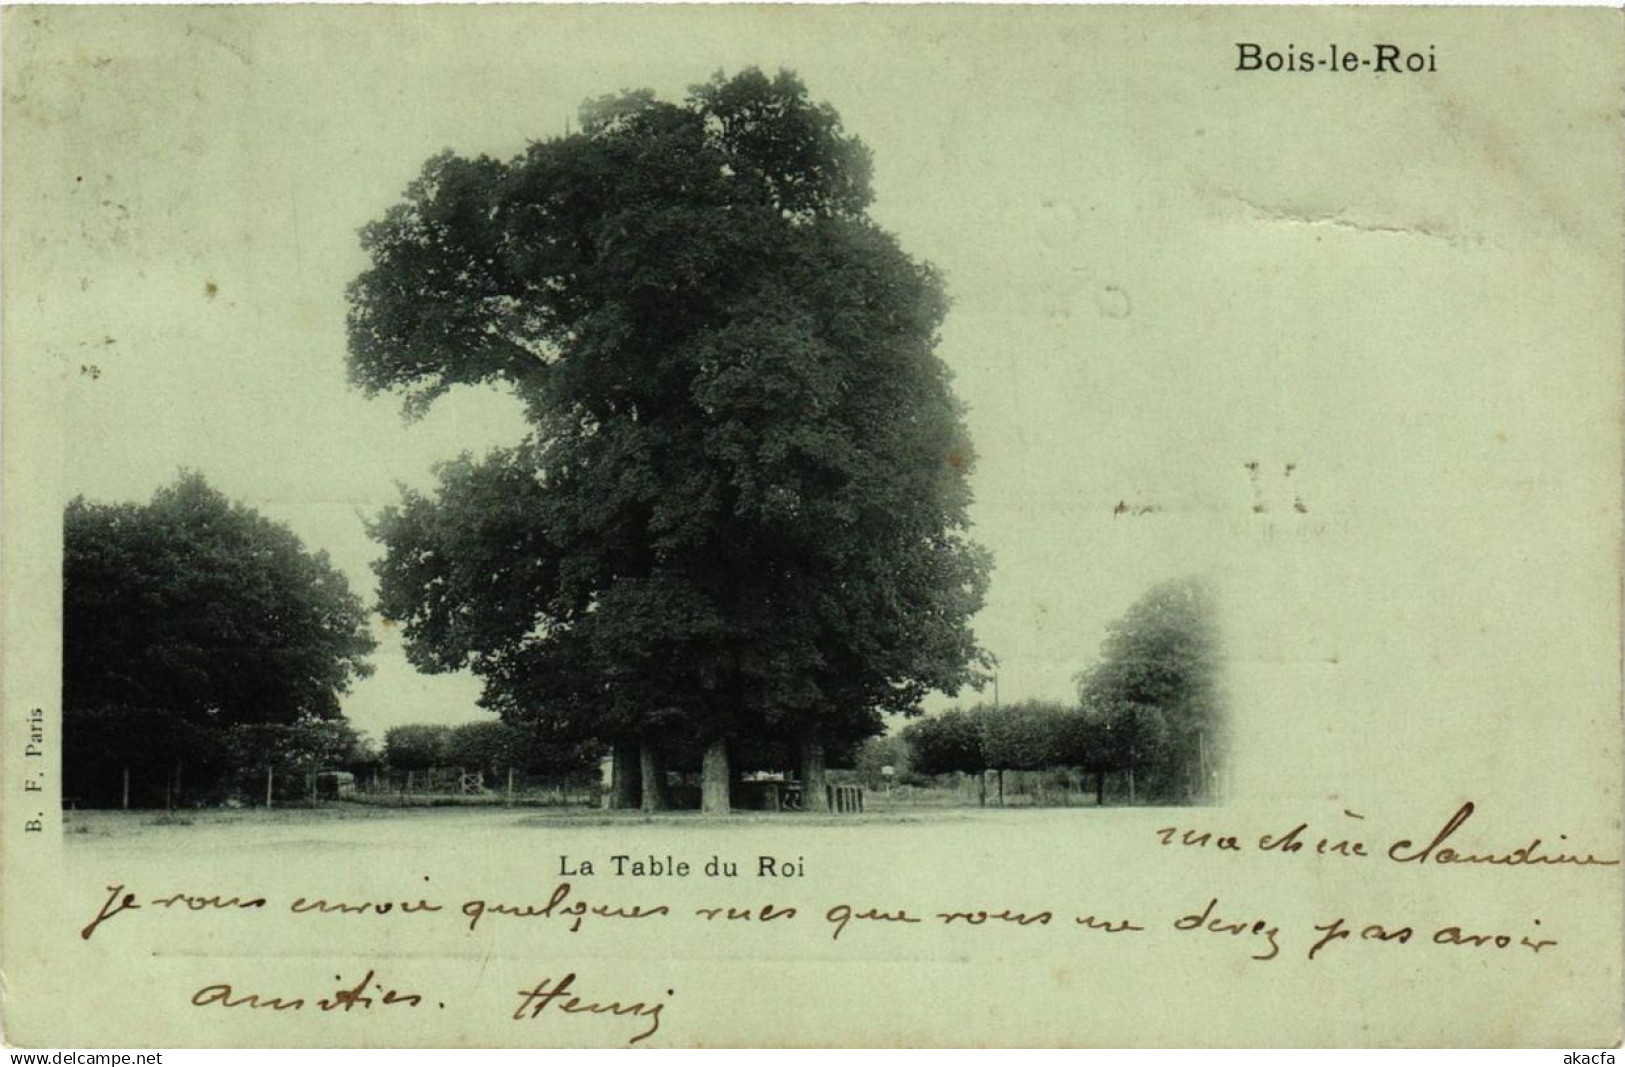 Bois-le-Roi
B. F. Paris
La Table du Roi
ma chère Claudine
Je vous envoie quelques vues que vous ne devez pas avoir
amitiés. Henri
www.delcampe.net
akacfa